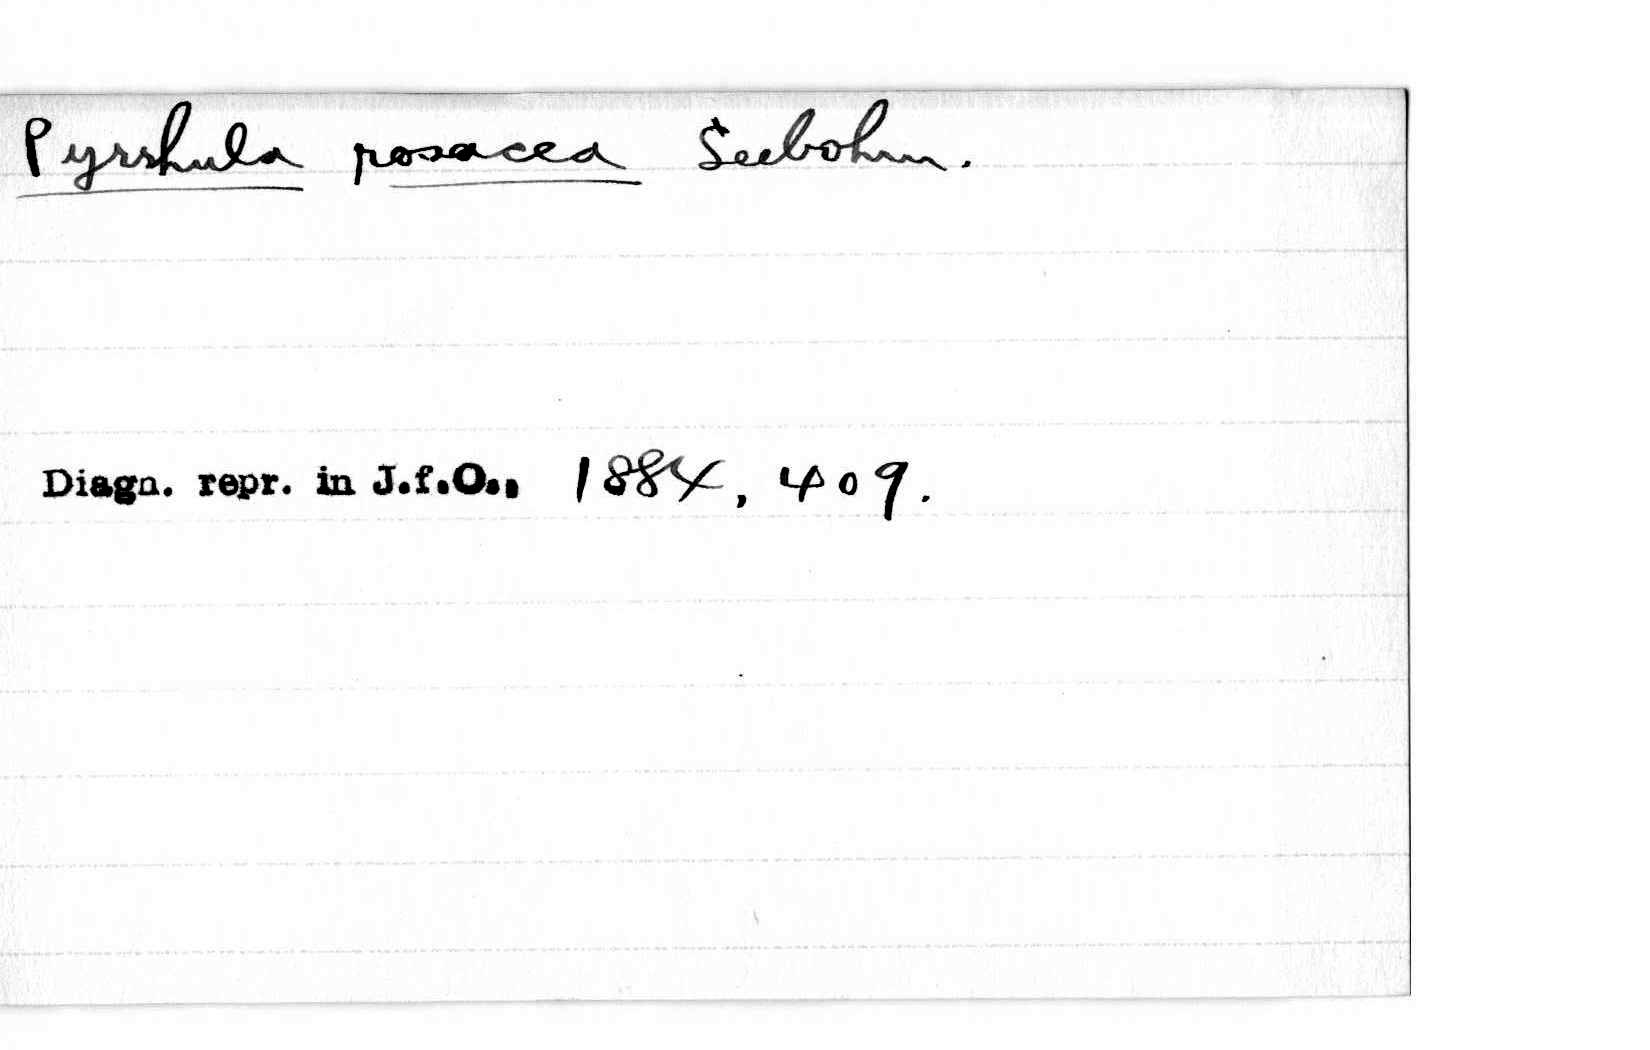 Pyrrhula rosacea Seebohm.
Diagn. repr. in J.f.O., 1884, 409.